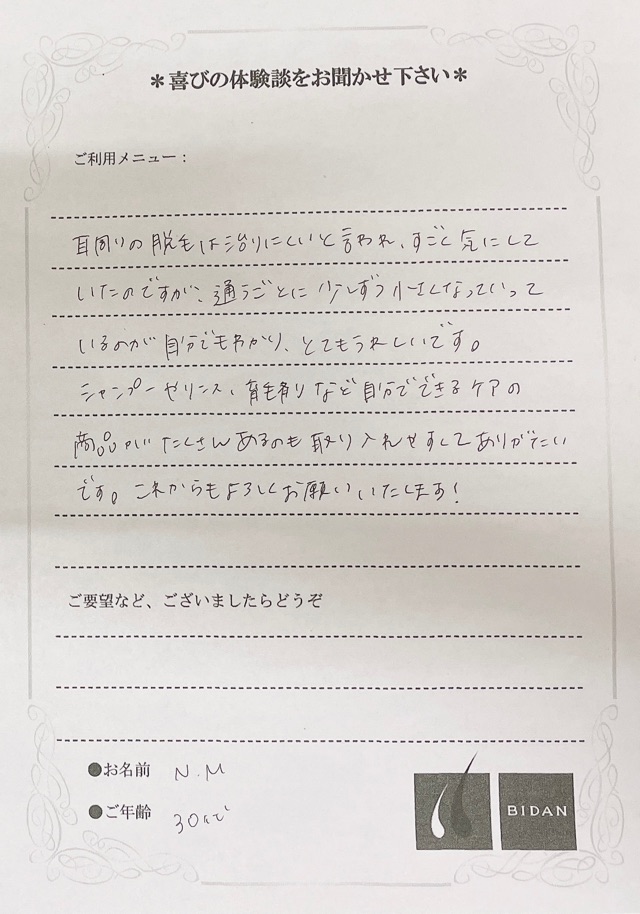 ＊喜びの体験談をお聞かせ下さい＊
ご利用メニュー：
耳周りの脱毛は治りにくいと言われ、すごく気にして
いたのですが、通うごとに少しずつ小さくなっていって
いるのが自分でもわかり、とてもうれしいです。
シャンプーやリンス、育毛剤など自分でできるケアの
商品がたくさんあるのも取り入れやすくてありがたい
です。これからもよろしくお願いいたします！
ご要望など、ございましたらどうぞ
●お名前 N.M
●ご年齢 30代
BIDAN